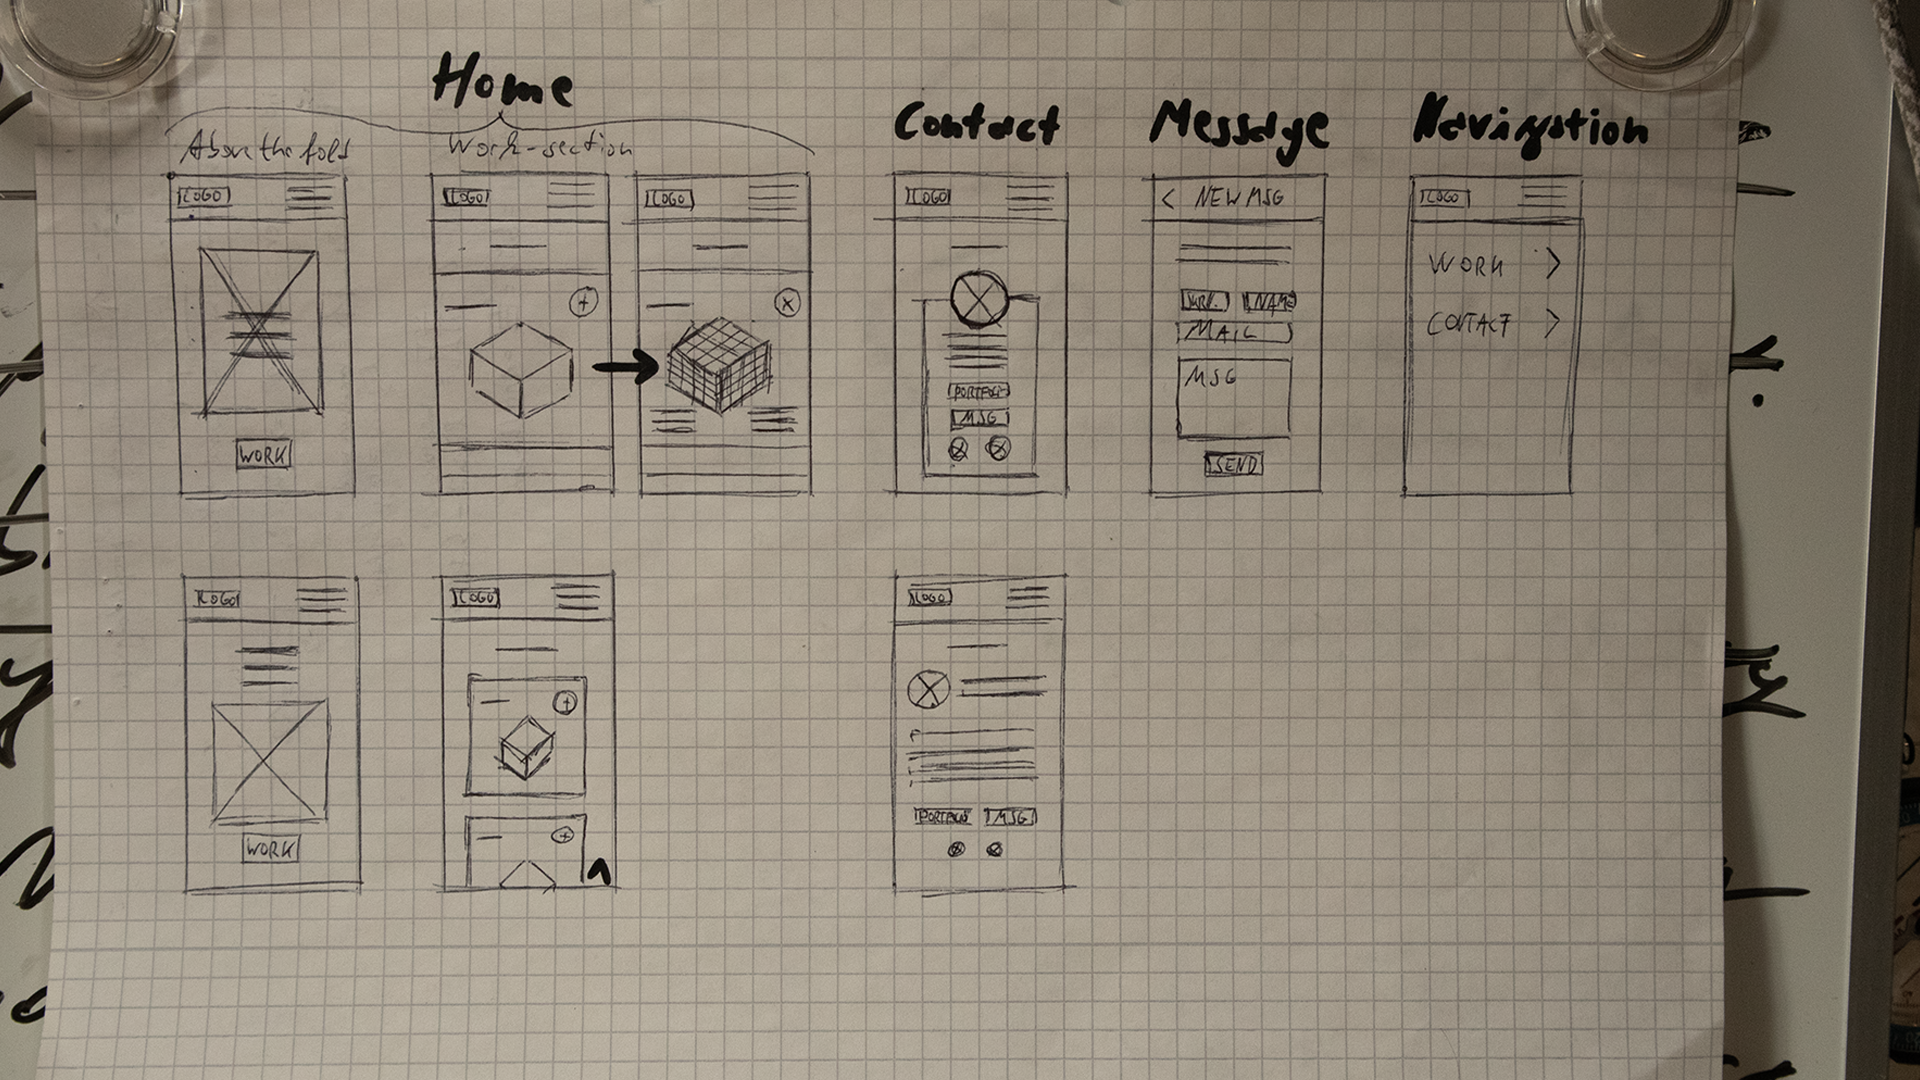 Home
Above the fold
Work-section
Contact
Message
Navigation
LOGO
WORK
LOGO
LOGO
LOGO
PORTFOLIO
MSG
< NEW MSG
NAME
MAIL
MSG
SEND
LOGO
WORK >
CONTACT >
LOGO
WORK
LOGO
LOGO
PORTFOLIO
MSG